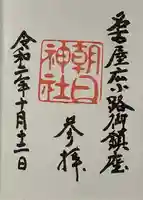 名古屋石小路御鎮座
朝日神社
参拝
令和二年十月十二日